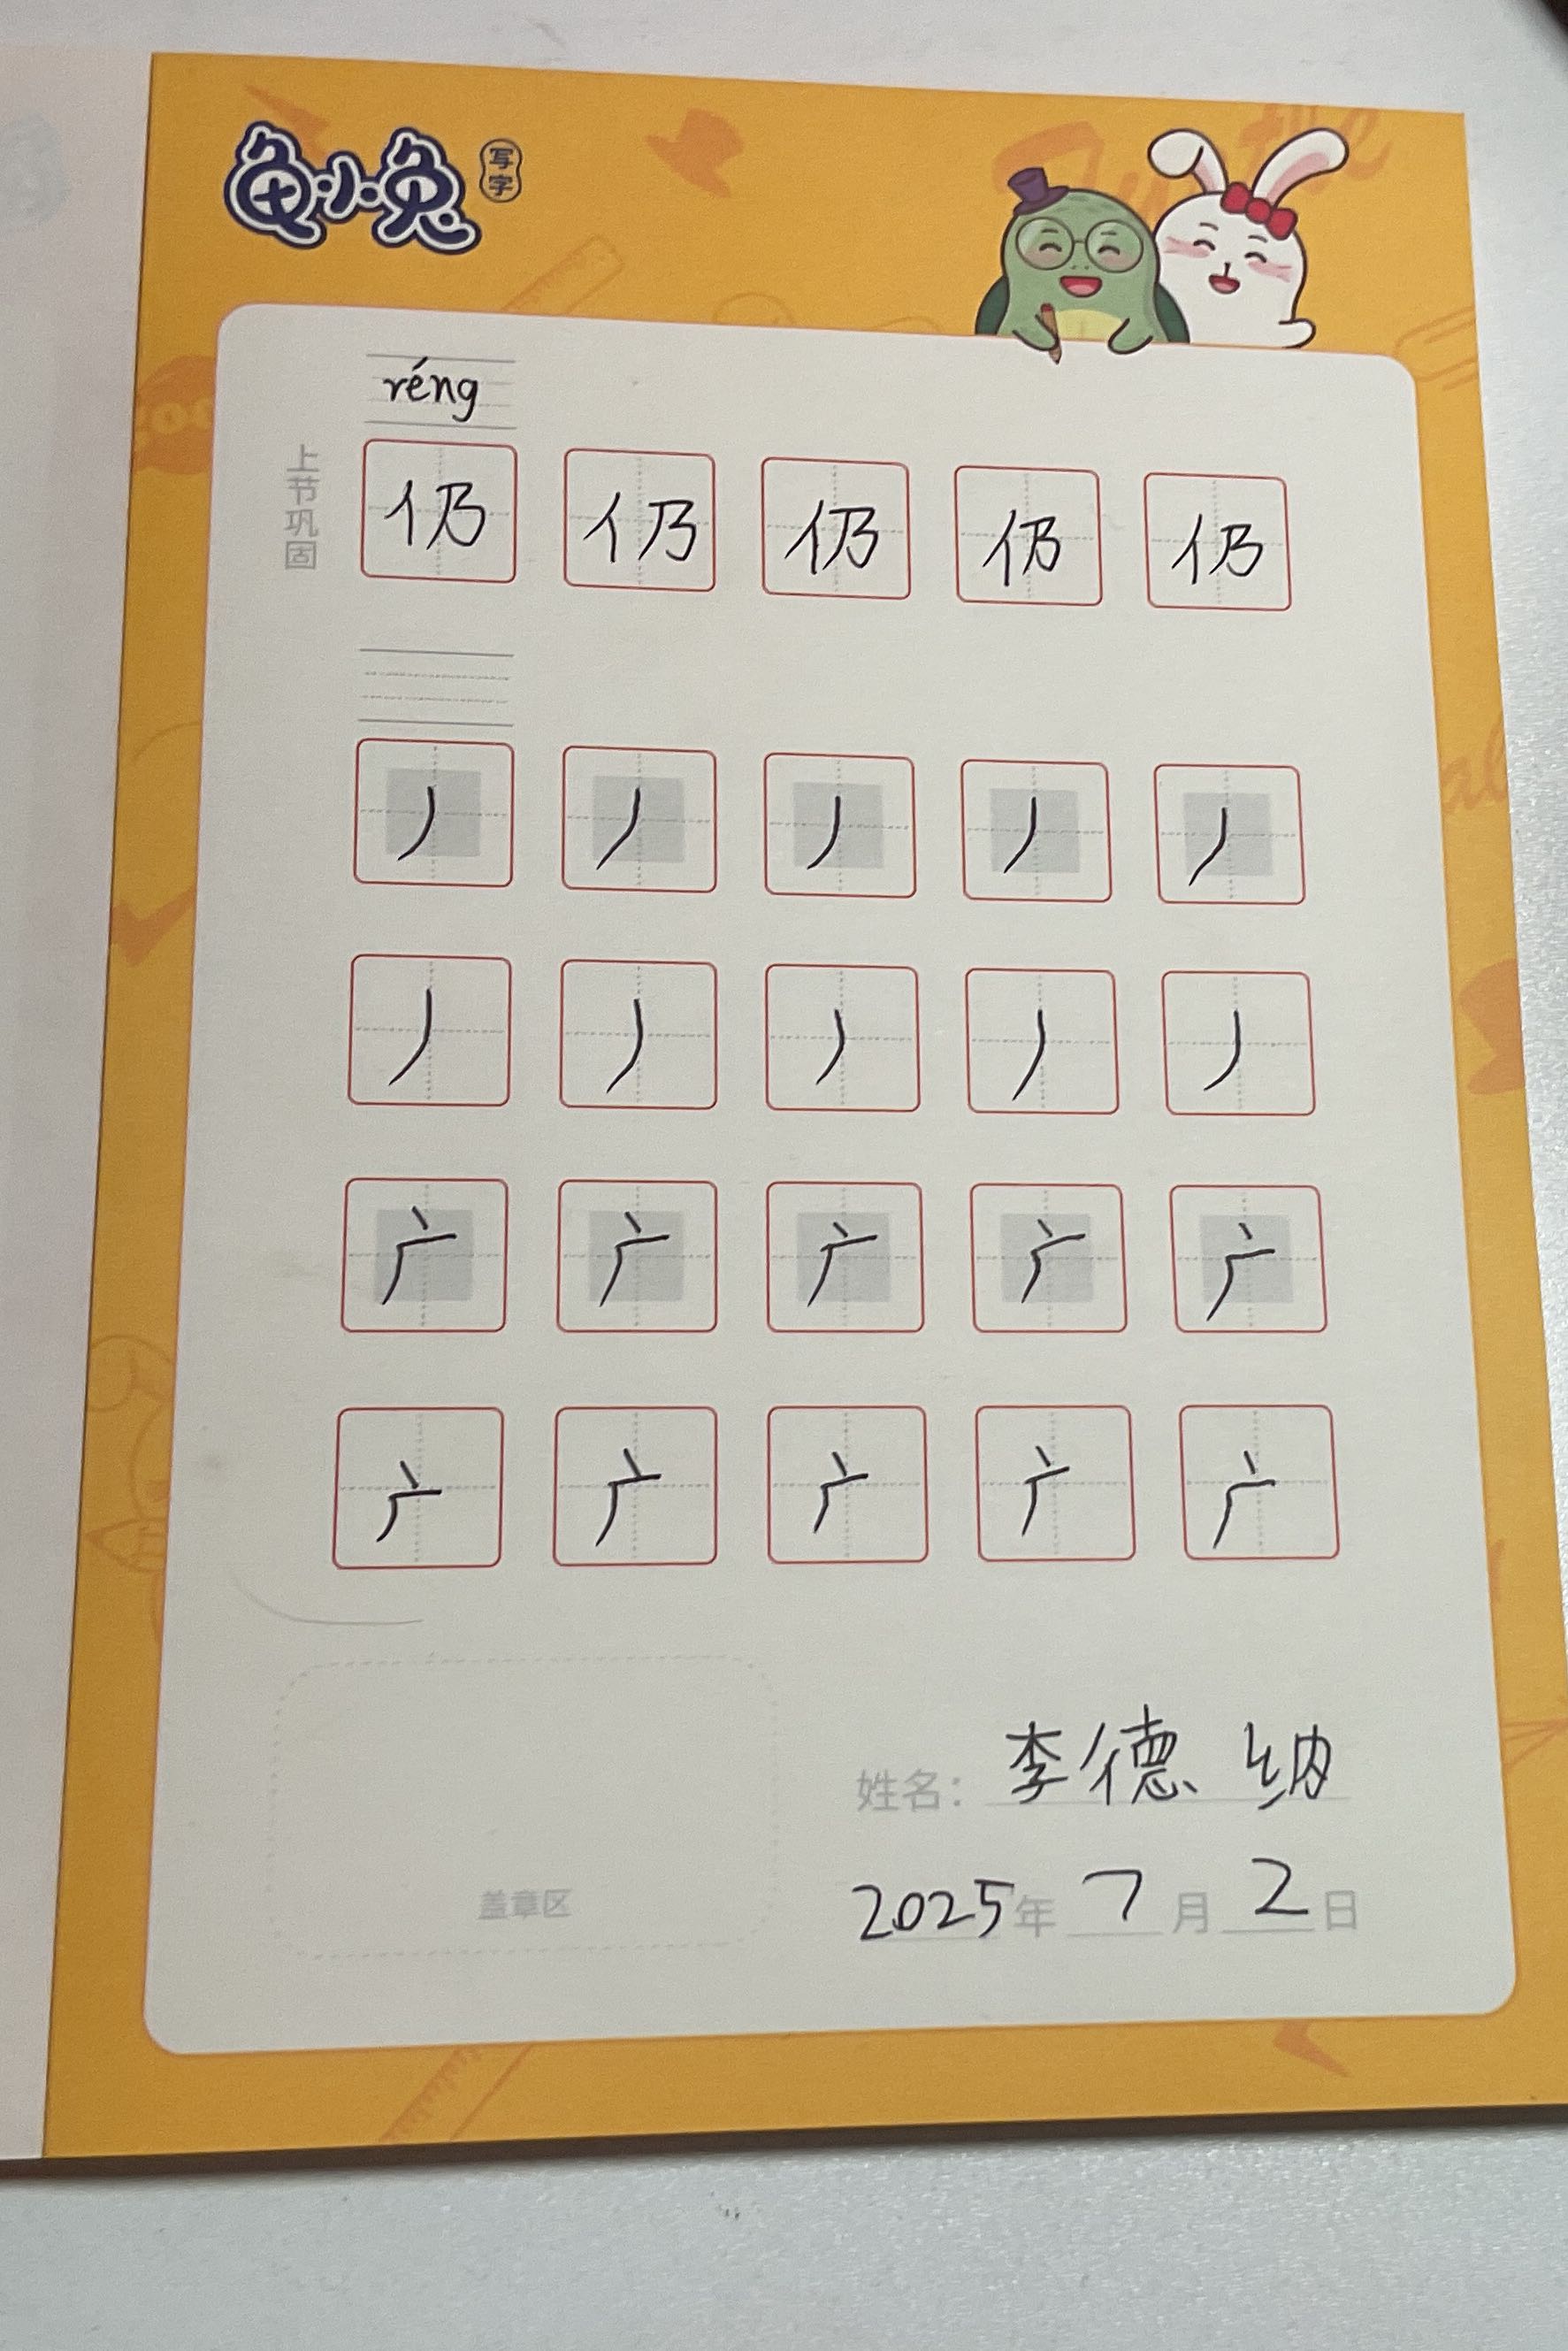 龟小兔 写字
réng
上节巩固
仍 仍 仍 仍 仍
丿 丿 丿 丿 丿
丿 丿 丿 丿 丿
广 广 广 广 广
广 广 广 广 广
姓名：李德纳
盖章区
2025年7月2日